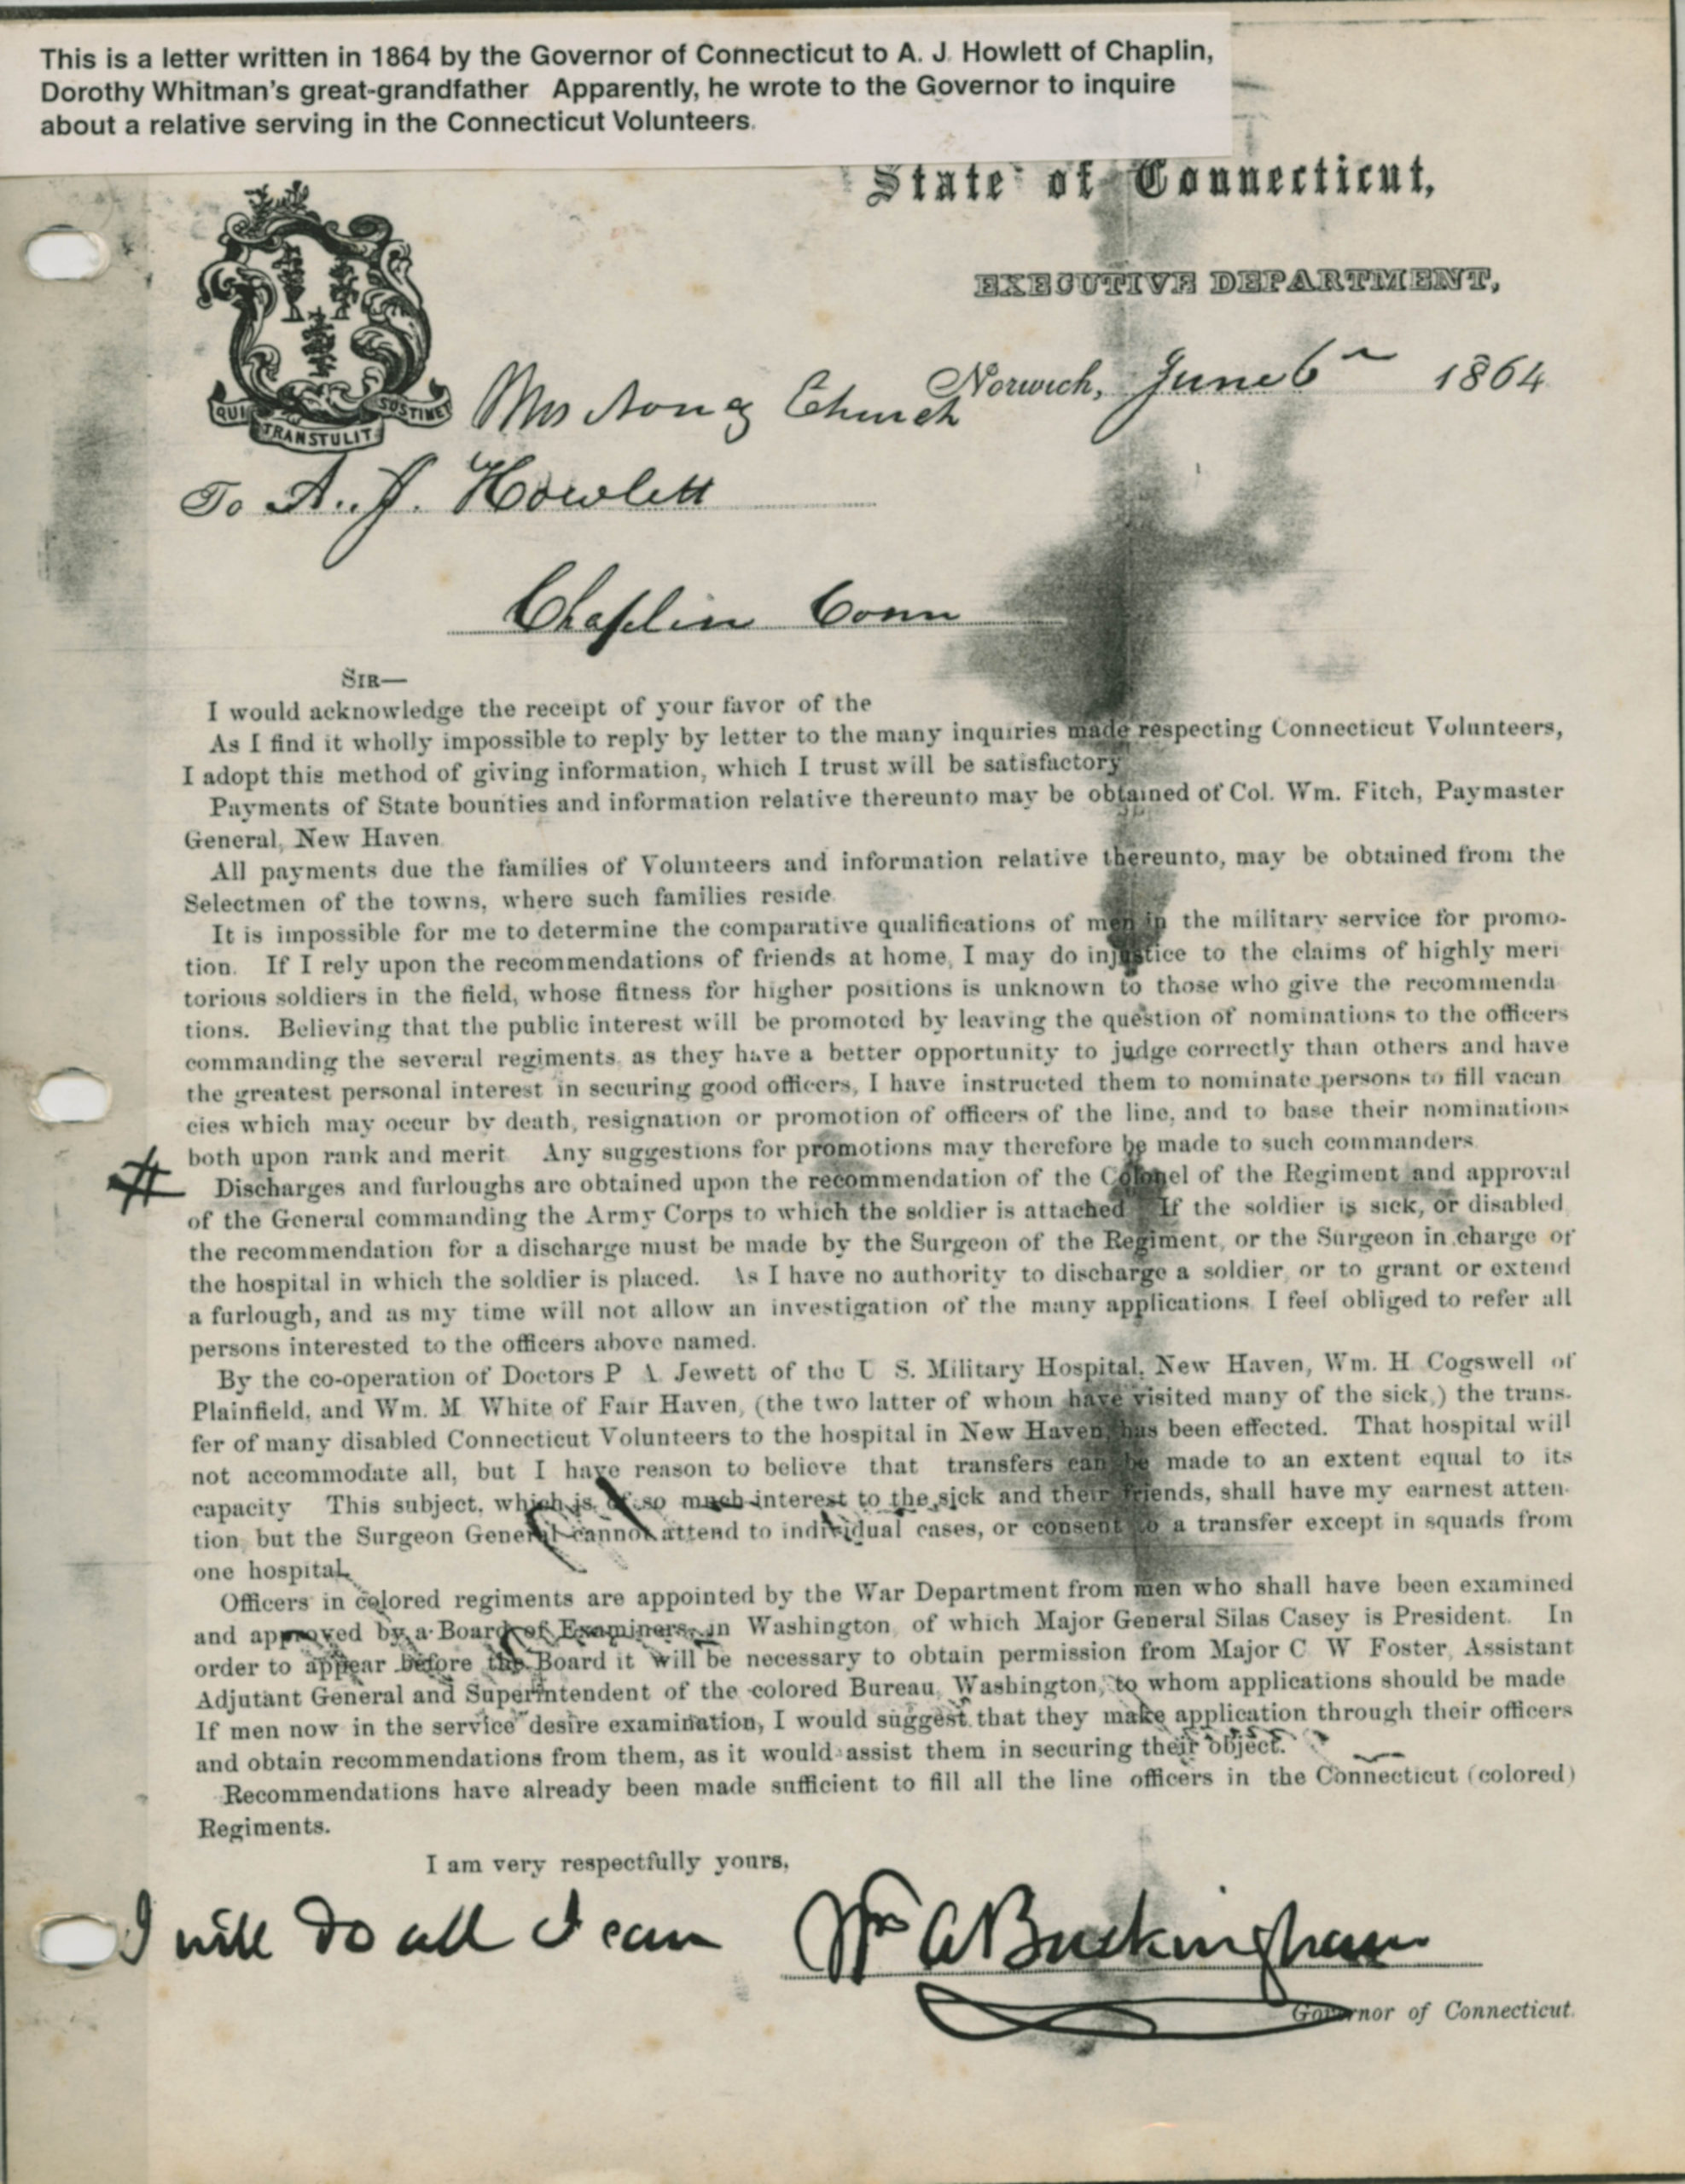 This is a letter written in 1864 by the Governor of Connecticut to A. J. Howlett of Chaplin,
Dorothy Whitman's great-grandfather Apparently, he wrote to the Governor to inquire
about a relative serving in the Connecticut Volunteers.
State of Connecticut,
EXECUTIVE DEPARTMENT,
Norwich, June 6 1864
QUI TRANSTULIT SUSTINET
Church
To A. J. Howlett
Chaplin Conn
SIR—
I would acknowledge the receipt of your favor of the
As I find it wholly impossible to reply by letter to the many inquiries made respecting Connecticut Volunteers,
I adopt this method of giving information, which I trust will be satisfactory
Payments of State bounties and information relative thereunto may be obtained of Col. Wm. Fitch, Paymaster
General, New Haven
All payments due the families of Volunteers and information relative thereunto, may be obtained from the
Selectmen of the towns, where such families reside.
It is impossible for me to determine the comparative qualifications of men in the military service for promo-
tion. If I rely upon the recommendations of friends at home, I may do injustice to the claims of highly meri
torious soldiers in the field, whose fitness for higher positions is unknown to those who give the recommenda
tions. Believing that the public interest will be promoted by leaving the question of nominations to the officers
commanding the several regiments, as they have a better opportunity to judge correctly than others and have
the greatest personal interest in securing good officers, I have instructed them to nominate persons to fill vacan
cies which may occur by death, resignation or promotion of officers of the line, and to base their nominations
both upon rank and merit Any suggestions for promotions may therefore be made to such commanders
# Discharges and furloughs are obtained upon the recommendation of the Colonel of the Regiment and approval
of the General commanding the Army Corps to which the soldier is attached If the soldier is sick, or disabled
the recommendation for a discharge must be made by the Surgeon of the Regiment, or the Surgeon in charge of
the hospital in which the soldier is placed. As I have no authority to discharge a soldier, or to grant or extend
a furlough, and as my time will not allow an investigation of the many applications I feel obliged to refer all
persons interested to the officers above named.
By the co-operation of Doctors P A. Jewett of the U S. Military Hospital, New Haven, Wm. H Cogswell of
Plainfield, and Wm. M White of Fair Haven, (the two latter of whom have visited many of the sick,) the trans-
fer of many disabled Connecticut Volunteers to the hospital in New Haven, has been effected. That hospital will
not accommodate all, but I have reason to believe that transfers can be made to an extent equal to its
capacity This subject, which is of so much interest to the sick and their friends, shall have my earnest atten-
tion, but the Surgeon General cannot attend to individual cases, or consent to a transfer except in squads from
one hospital.
Officers in colored regiments are appointed by the War Department from men who shall have been examined
and approved by a Board of Examiners, in Washington, of which Major General Silas Casey is President. In
order to appear before the Board it will be necessary to obtain permission from Major C W Foster, Assistant
Adjutant General and Superintendent of the colored Bureau, Washington, to whom applications should be made
If men now in the service desire examination, I would suggest that they make application through their officers
and obtain recommendations from them, as it would assist them in securing their object.
Recommendations have already been made sufficient to fill all the line officers in the Connecticut (colored)
Regiments.
I am very respectfully yours,
I will do all I can Wm A Buckingham
Governor of Connecticut.